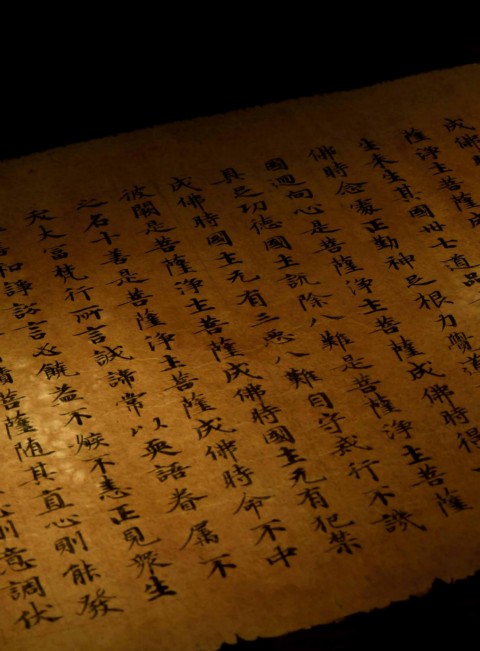 成佛時
薩淨土菩薩成
生來生其國卅七道品
佛時念處正勤神足根力覺道
國迴向心是菩薩淨土菩薩成佛時得
具足功德國土說除八難是菩薩淨土菩薩
成佛時國土无有三惡八難自守戒行不譏
彼闕是菩薩淨土菩薩成佛時國土无有犯禁
之名十善是菩薩淨土菩薩成佛時命不中
夭大富梵行所言誠諦常以耎語眷属不
善和諍訟言必饒益不嫉不恚正見眾生
菩薩随其直心則能發
則意調伏